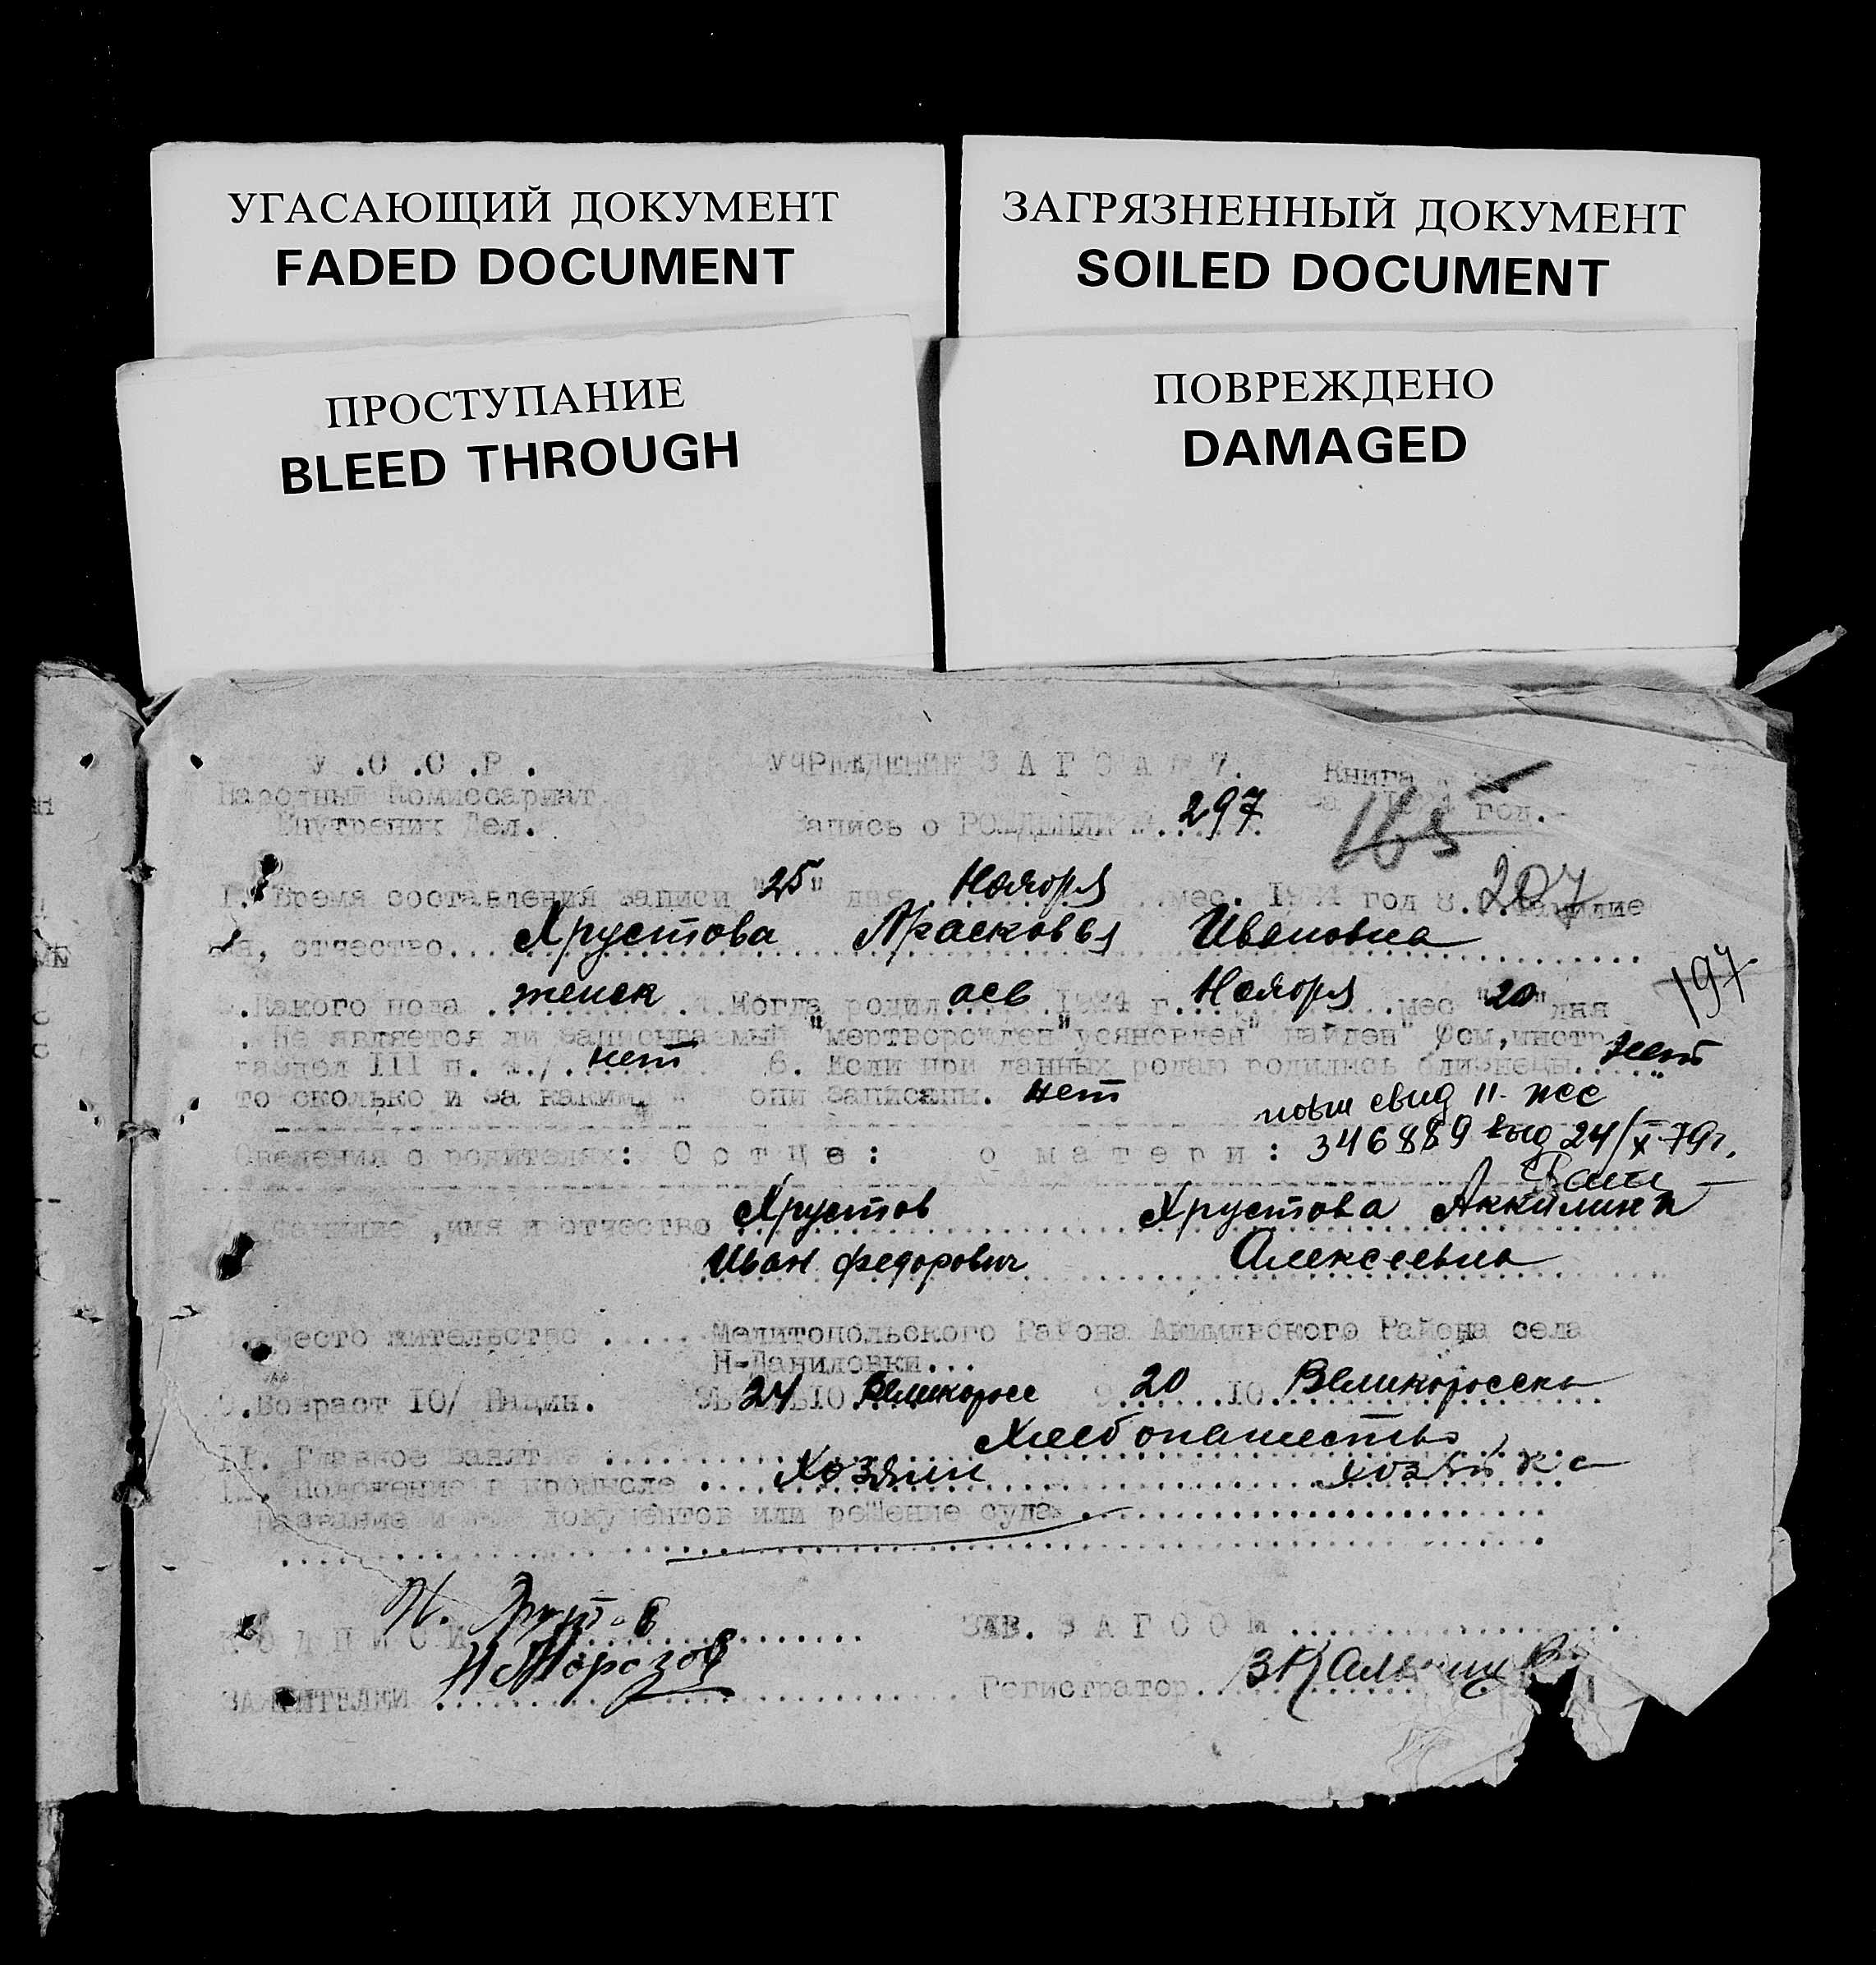 УГАСАЮЩИЙ ДОКУМЕНТ
FADED DOCUMENT
ЗАГРЯЗНЕННЫЙ ДОКУМЕНТ
SOILED DOCUMENT
ПРОСТУПАНИЕ
BLEED THROUGH
ПОВРЕЖДЕНО
DAMAGED
У .С .С .Р . УЧРЕЖДЕНИЕ ЗАГСА Книга
Народный Комиссариат
Внутрених Дел. Запись о РОЖДЕНИИ № 297 за год.
165
1. Время составления записи "25" дня Ноября мес. год 207
имя, отчество... Хрустова Прасковья Ивановна
197
.Какого пола женск .Когда родил ась г. Ноября мес "20" дня
. Не является ли записываемый "мертворожден" усяновлен" найден"
раздел III п. нет 6. Если при данных родах родились близнецы... нет
то сколько и за каким они записаны. нет
повт свид II-
346889 выд 24/X-79г.
Сведения о родителях: О отце: о матери:
имя и отчество Хрустов Хрустова Аккилина
Иван Федорович Алексеевна
Место жительство ..... Мелитопольского Района Акимивского Района села
Н-Даниловки...
9.Возраст 10/ Нацин. 24 10 Великоросс 9 20 10 Великоросска
11. Главное занят Хлебопашество
12. Положение в промысле Хозяин хозяйка
Название и документов или решение суда
ПОДПИСИ Зав. ЗАГСОМ
Н Морозов
ЗАЯВИТЕЛЕЙ Регистратор